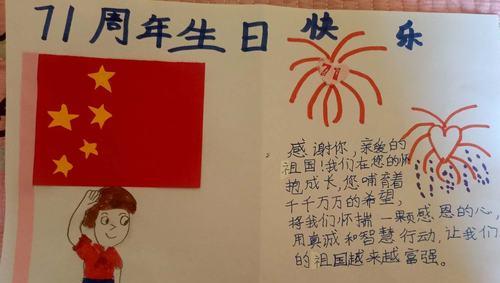 71周年生日快乐
71
感谢你，亲爱的
祖国！我们在您的怀
抱成长，您哺育着
千千万万的希望，
将我们怀揣一颗感恩的心，
用真诚和智慧行动，让我们
的祖国越来越富强。